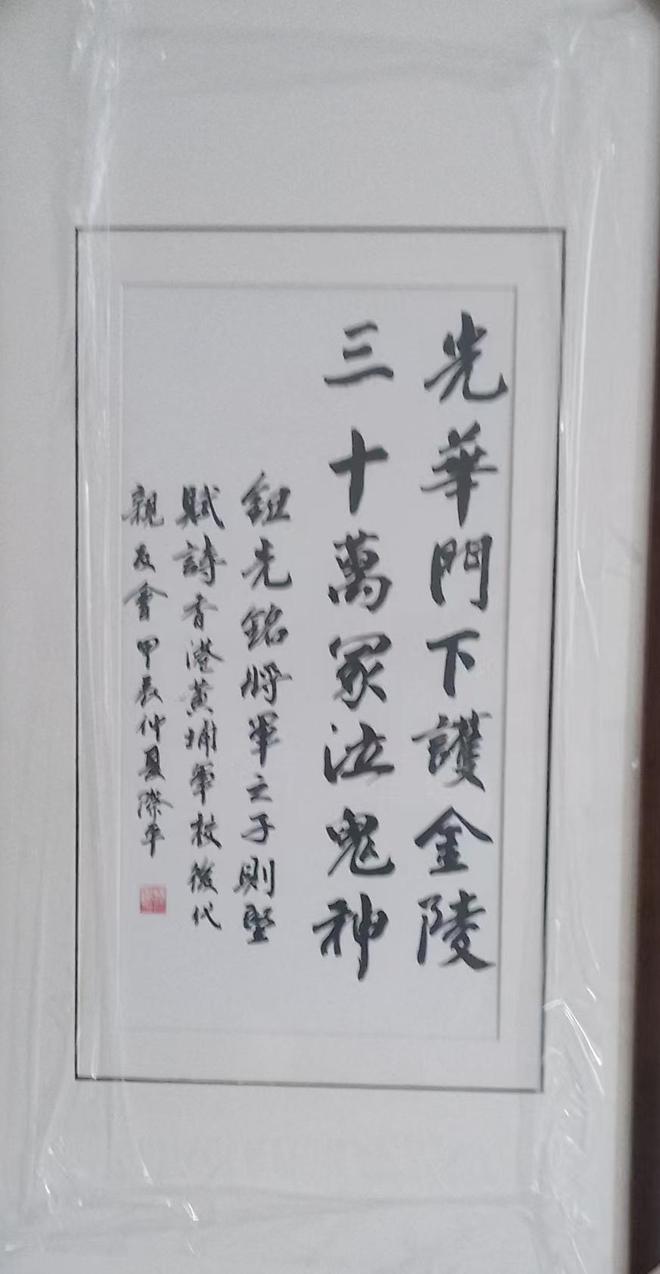 光華門下護金陵
三十萬冢泣鬼神
鈕先銘將軍之子則堅
賦詩香港黃埔軍校後代
親友會甲辰仲夏際平